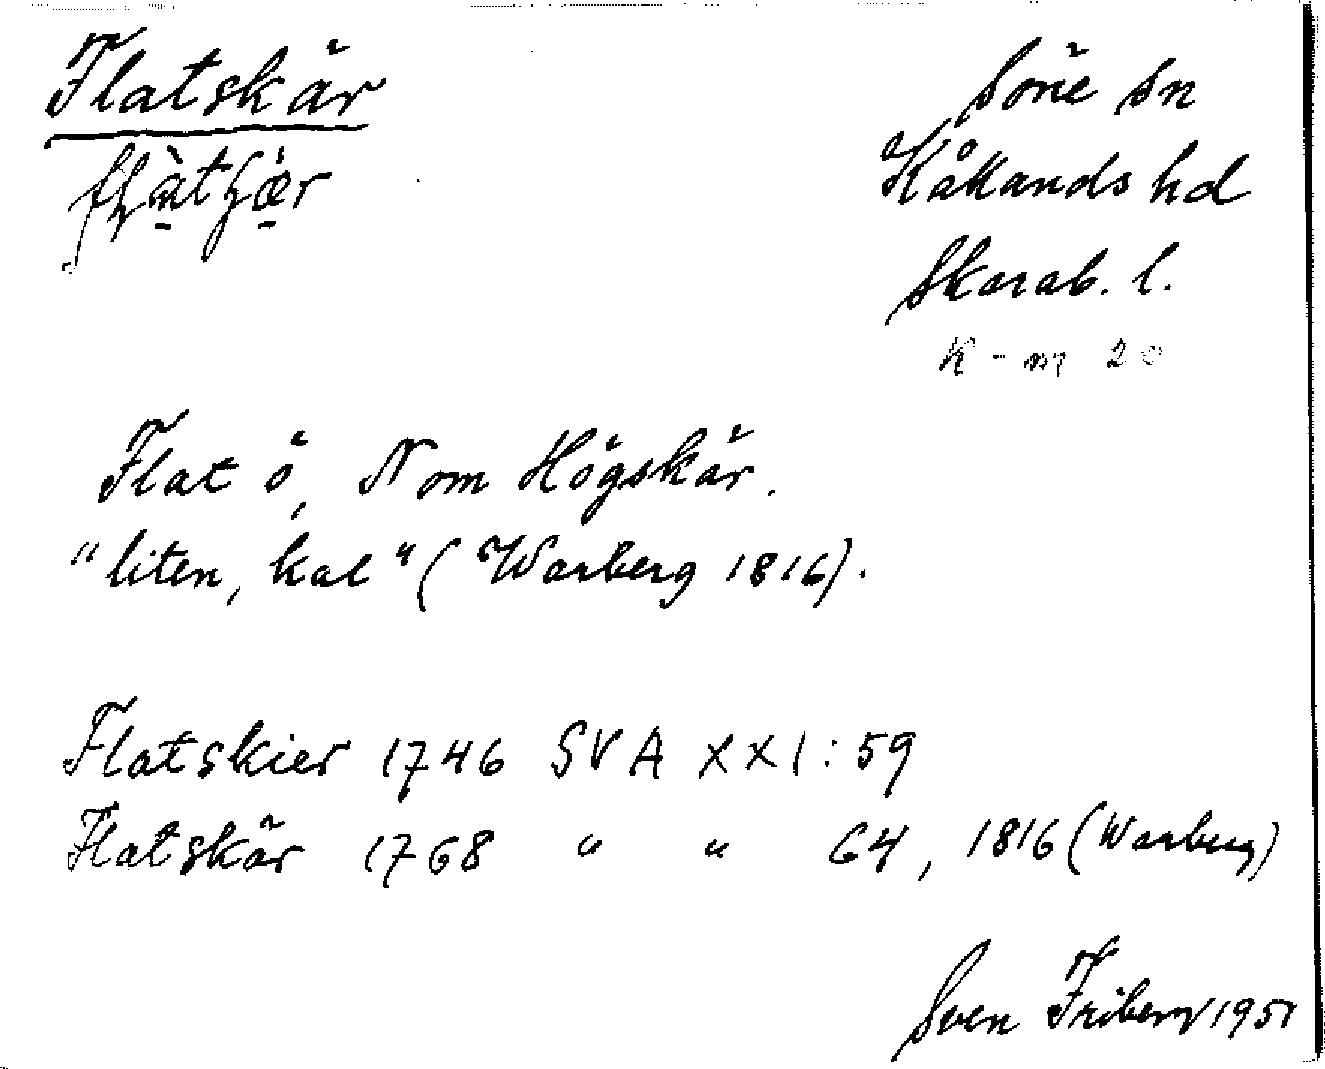 Flatskär
Söne sn
Kållands hd
Skarab. l.
K-m 20
Flat ö, N om Högskär.
"liten, kal" (Warberg 1816).
Flatskier 1746 SVA XXI:59
Flatskär 1768 " " 64, 1816 (Warberg)
Sven Friberg 1951